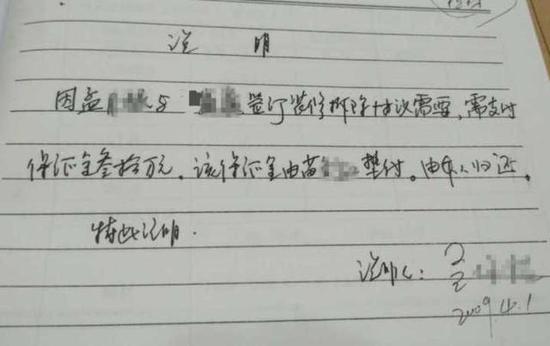 说明
因孟 与 签订装修拆除协议需要,需支付
保证金叁拾万元。该保证金由苗 垫付。由本人归还。
特此证明.
证明人: 孟
2009.4.1